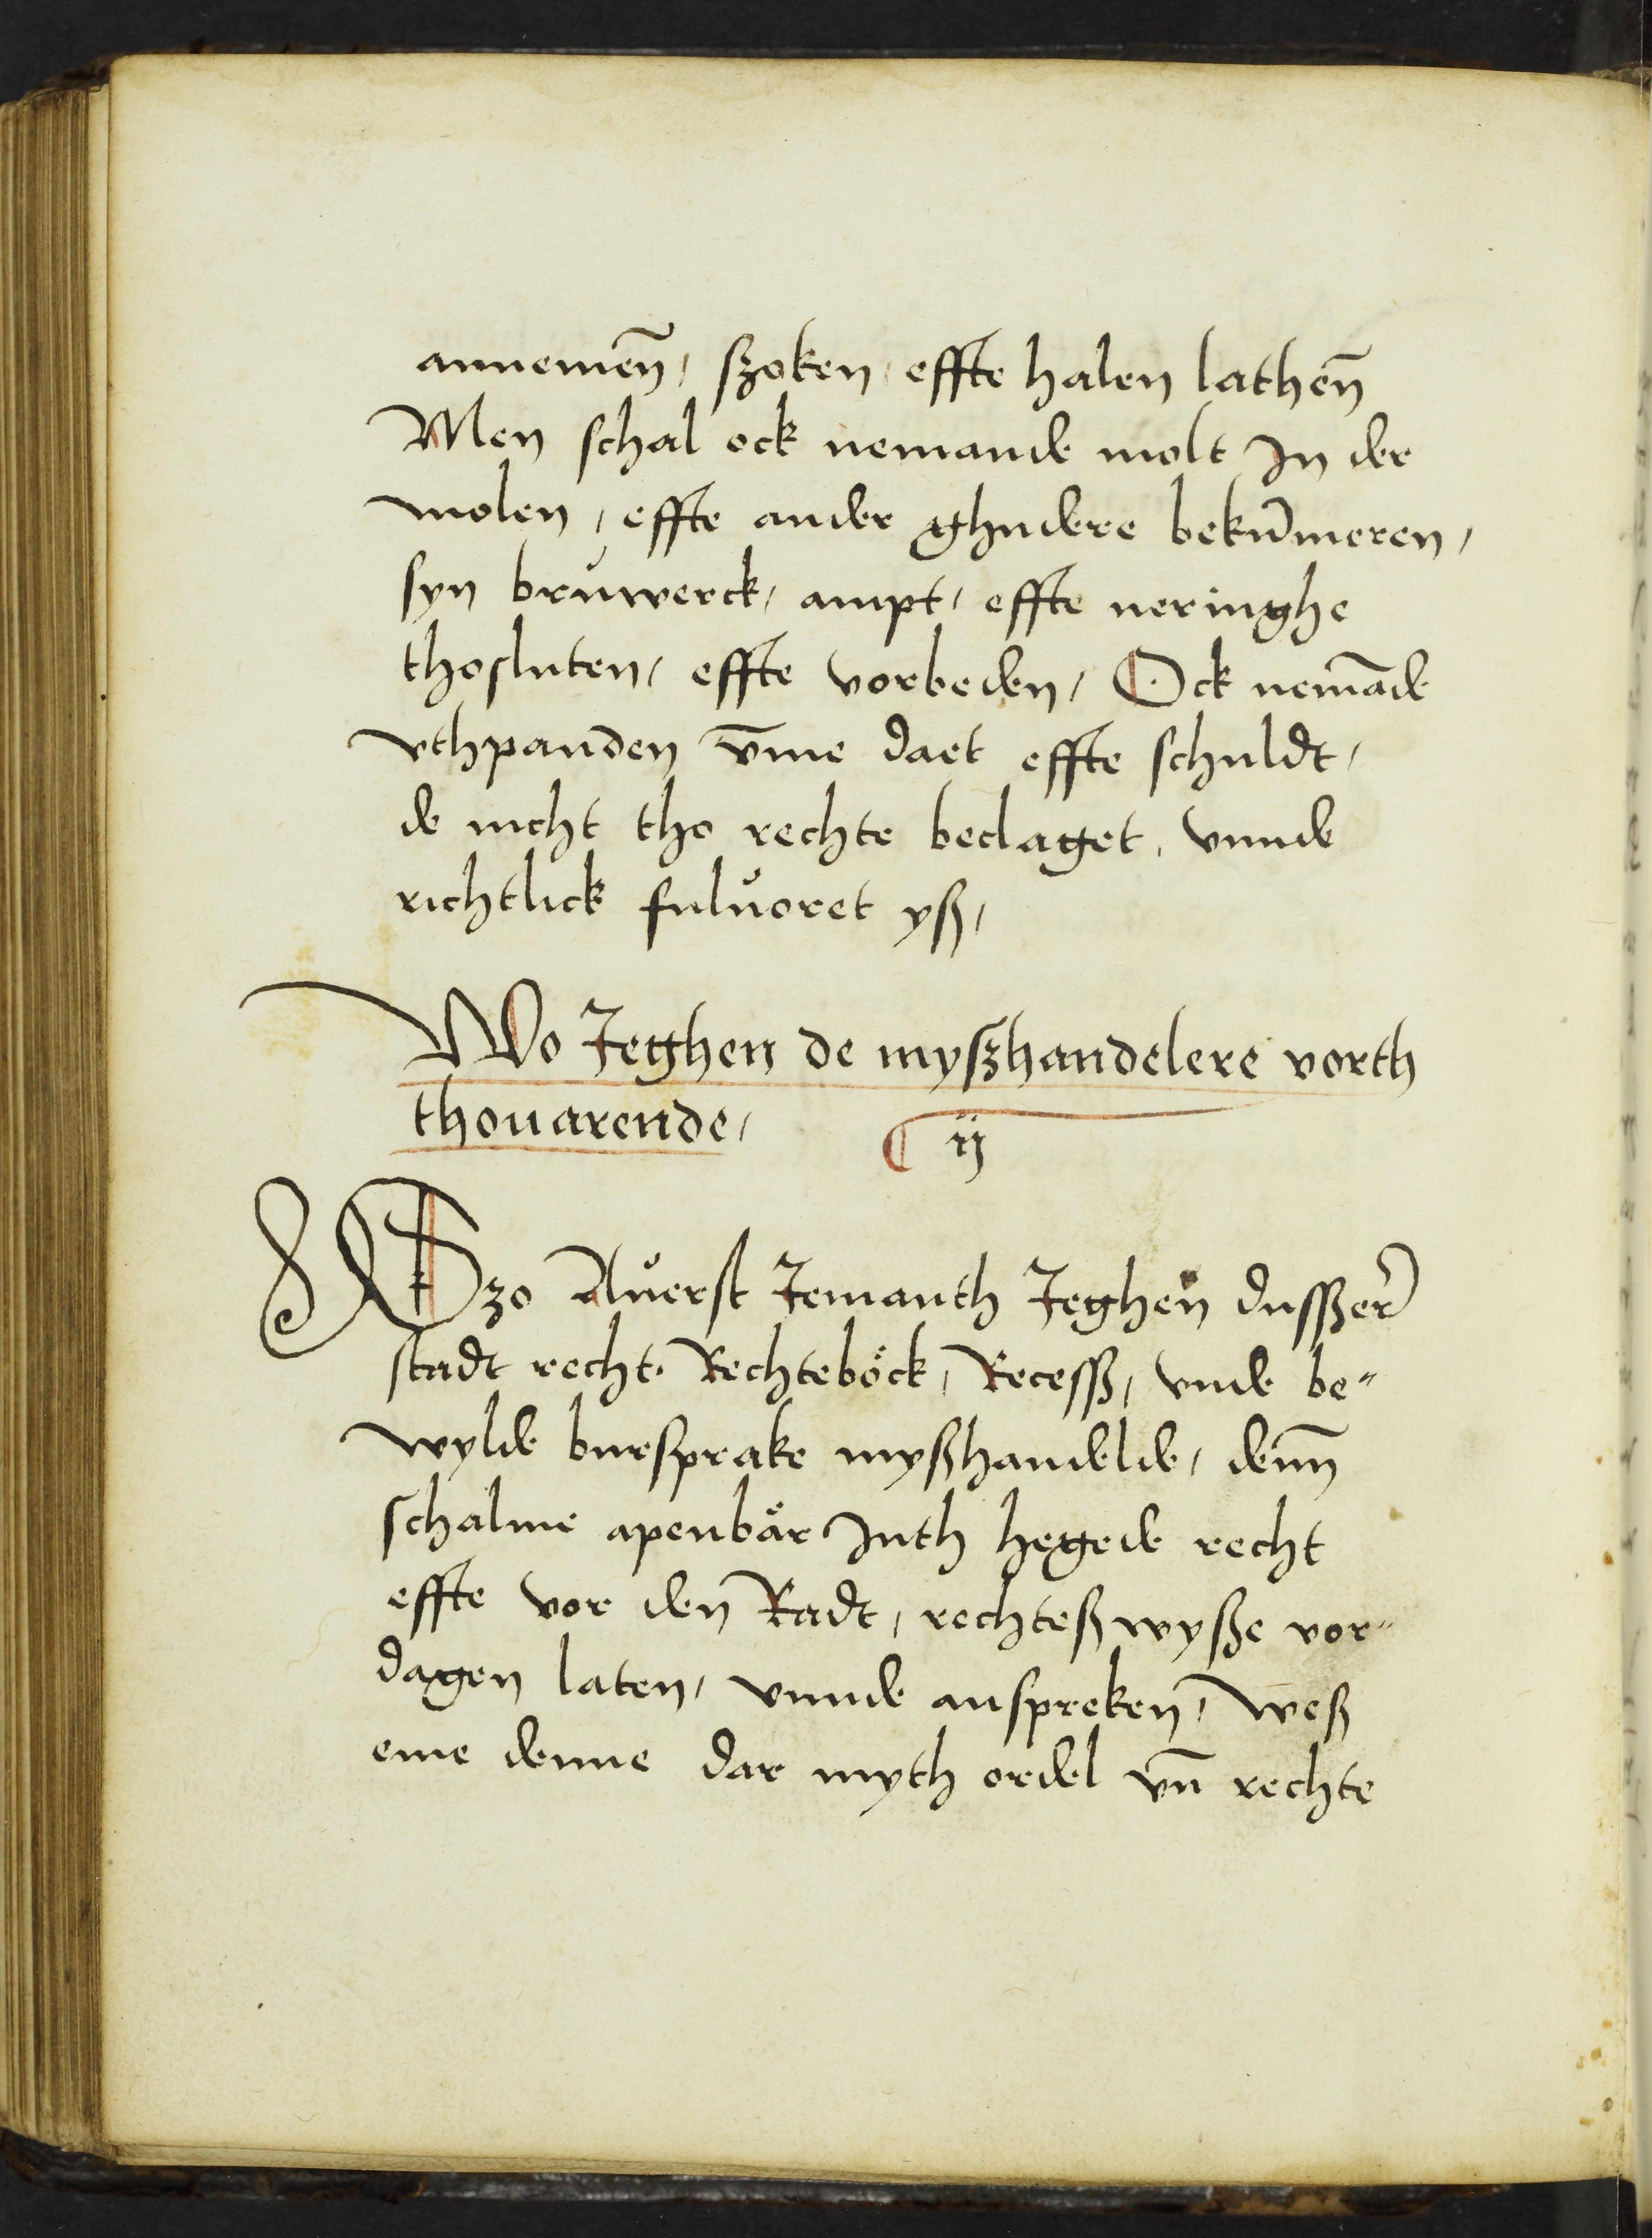 annemen̄, szoken, effte halen lathen̄
Men schal ock nemande molt Jn der
molen, effte ander ghudere bekūmeren,
syn bruwerck, ampt, effte neringhe
thosluten, effte vorbeden, Ock nemāde
vthpanden v̄me daet effte schuldt,
de nicht tho rechte beclaget, vnnde
richtlick fuluoret yß,
Wo Jeghen de myßhandelere vorth
thouarende, ij
Szo Auerst Jemanth Jeghen dusßer
stadt recht, Rechteböck, Recesß, vnde be"
wylde bursprake myßhandelde, denn̄
schalme apenbar Jnth hegede recht
effte vor den Radt, rechteß wyße vor"
dagen laten, vnnde anspreken, weß
eme denne dar myth ordel vn̄ rechte